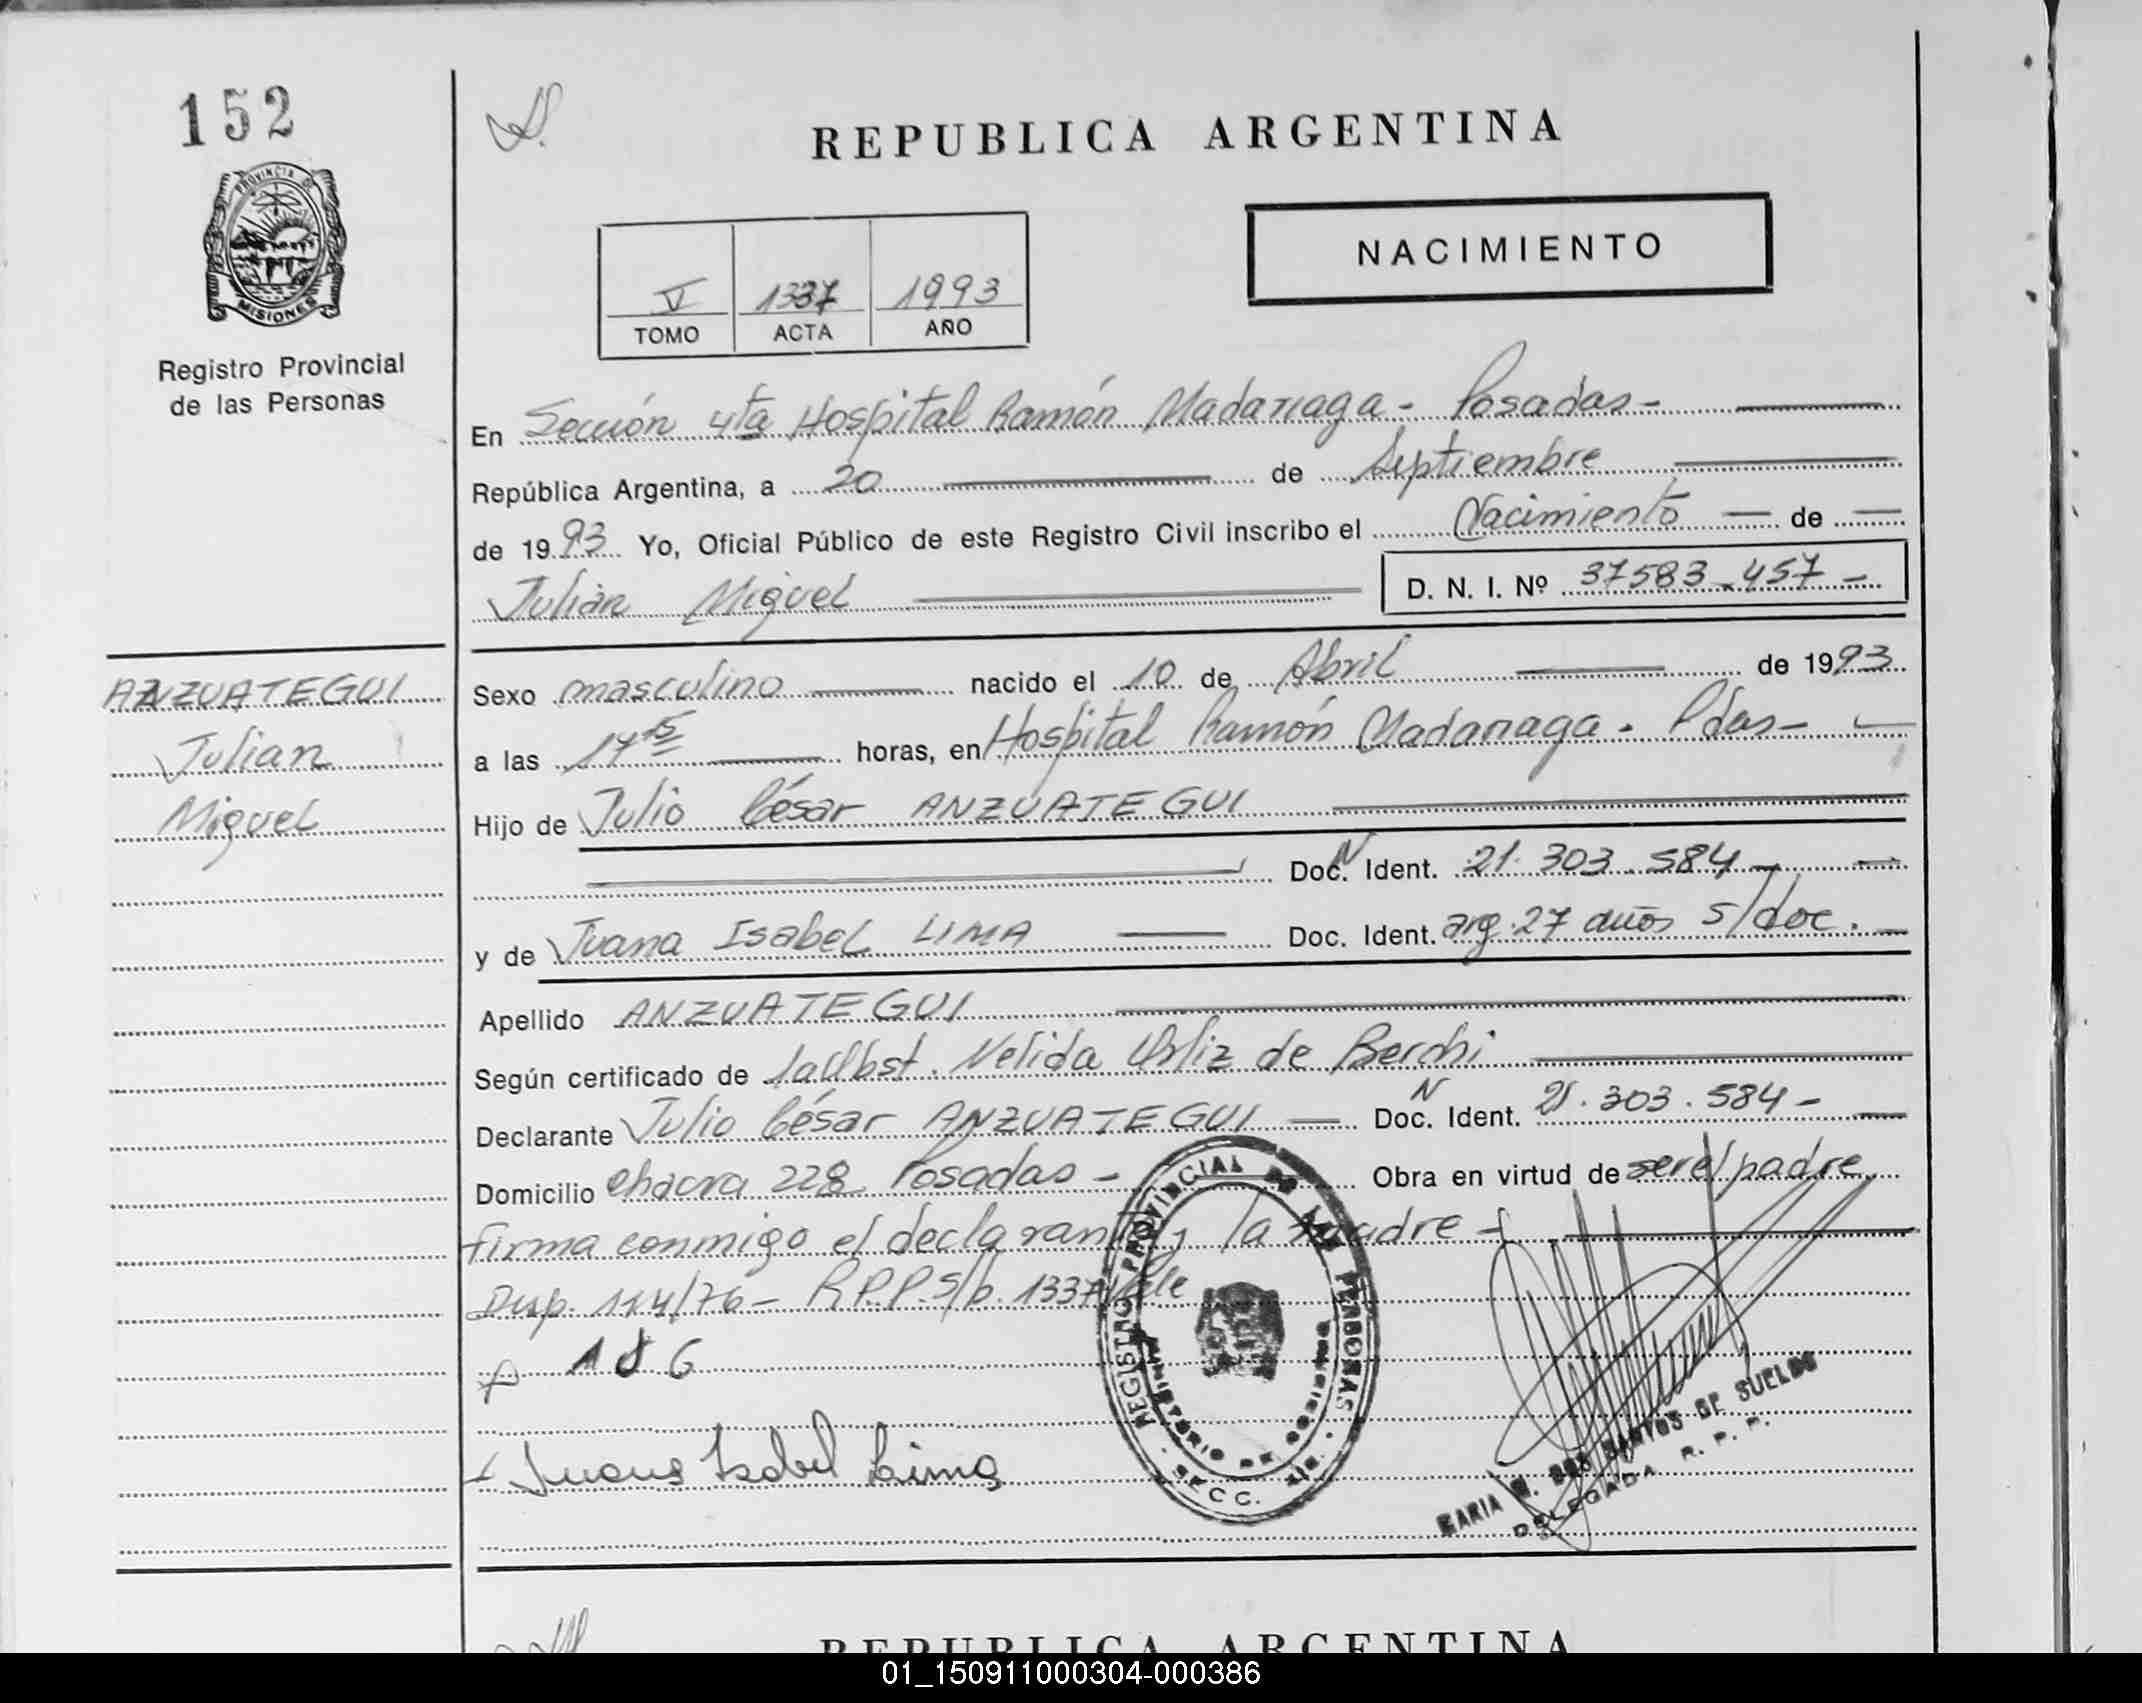 152
REPUBLICA ARGENTINA
PROVINCIA DE
MISIONES
Registro Provincial
de las Personas
NACIMIENTO
V 1337 1993
TOMO ACTA AÑO
En Sección 4ta Hospital Ramón Madariaga - Posadas -
República Argentina, a 20 de Septiembre
de 1993 Yo, Oficial Público de este Registro Civil inscribo el Nacimiento de
Julián Miguel D. N. I. Nº 37583.457 -
ANZUATEGUI
Julian
Miguel
Sexo masculino nacido el 10 de Abril de 1993
a las 14 15 horas, en Hospital Ramón Madariaga - Pdas -
Hijo de Julio César ANZUATEGUI
Doc. N Ident. 21.303.584 -
y de Juana Isabel LIMA Doc. Ident. arg. 27 años s/doc. -
Apellido ANZUATEGUI
Según certificado de la Obst. Nelida Ortiz de
Declarante Julio César ANZUATEGUI Doc. N Ident. 21.303.584 -
Domicilio Chacra 228 Posadas - Obra en virtud de ser el padre
firma conmigo el declarante y la madre -
Disp. 114/76 - R.P.P. s/b. 1337 Vale
Juana Isabel Lima
REGISTRO PROVINCIAL DE LAS PERSONAS
MINISTERIO DE GOBIERNO
MARIA DOS SANTOS DE SUELDO
DELEGADA R. P. P.
REPUBLICA ARGENTINA
01_150911000304-000386